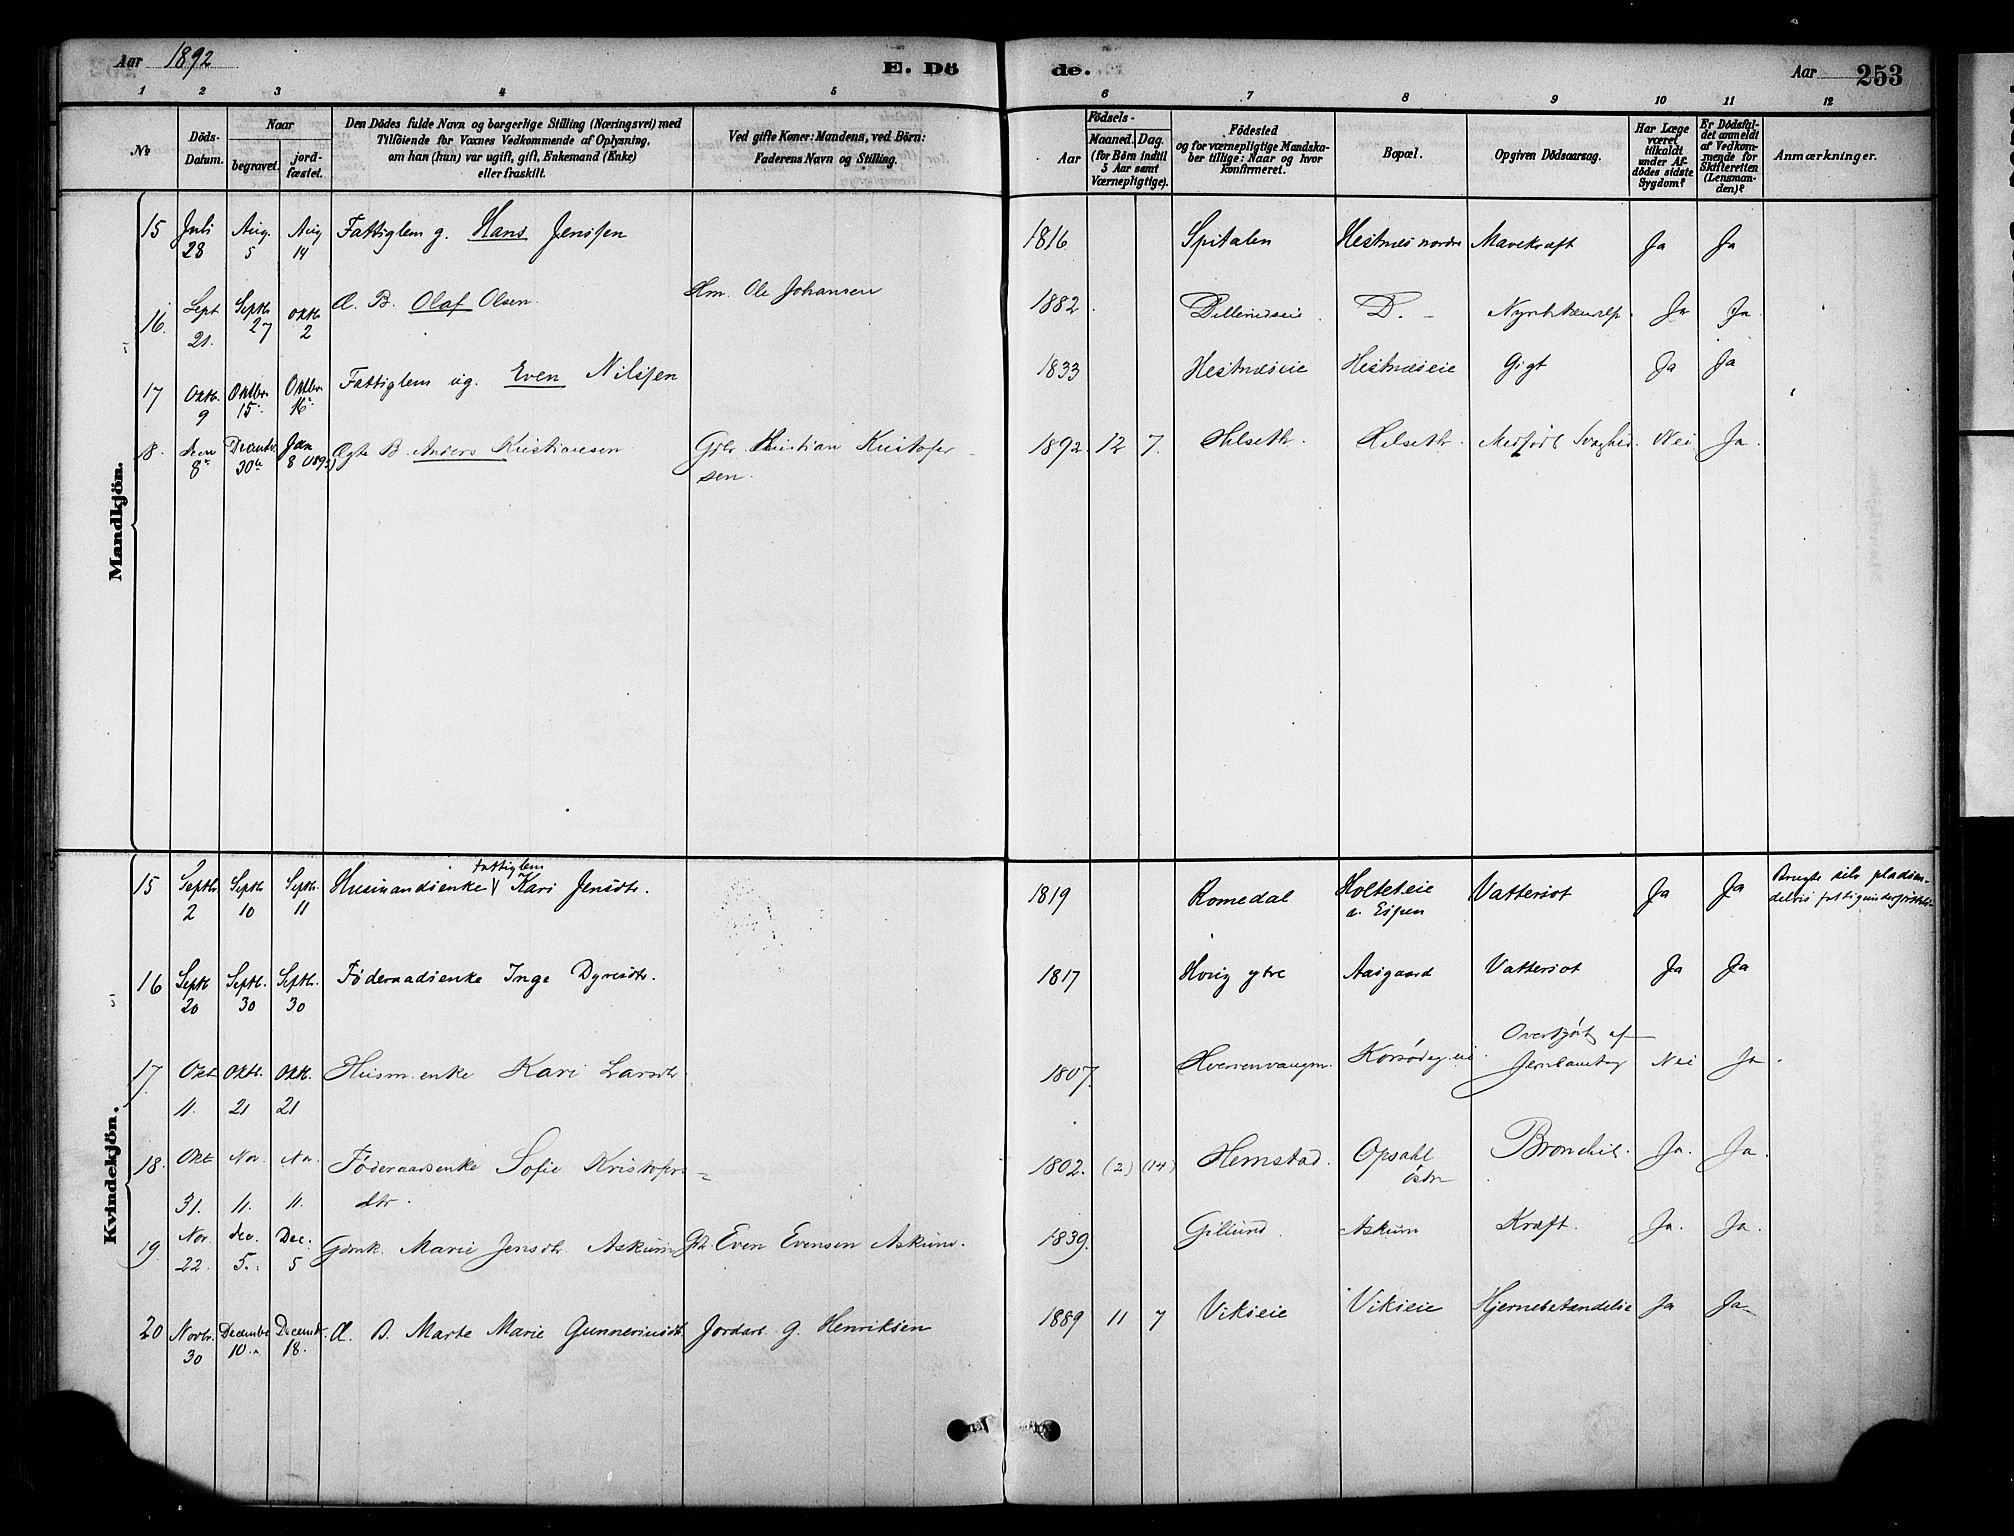 Aar 1892
E. Dö
de.
Aar 253
1 2 3 4 5 6 7 8 9 10 11 12
№
Döds-Datum.
Naar
begravet.
jordfæstet.
Den Dödes fulde Navn og borgerlige Stilling (Næringsvei) med
Tilföiende for Voxnes Vedkommende af Oplysning,
om han (hun) var ugift, gift, Enkemand (Enke)
eller fraskilt.
Ved gifte Koner: Mandens, ved Börn:
Faderens Navn og Stilling.
Födsels-
Aar
Maaned. Dag.
(for Börn indtil
5 Aar samt
Værnepligtige).
Födested
og for værnepligtige Mandska-
ber tillige: Naar og hvor
konfirmeret.
Bopæl.
Opgiven Dödsaarsag.
Har Læge
været
tilkaldt
under Af-
dödes sidste
Sygdom?
Er Dödsfal-
det anmeldt
af Vedkom-
mende for
Skifteretten
(Lensman-
den)?
Anmærkninger.
Mandkjön.
15 Juli 28 Aug. 5 Aug 14 Fattiglem g. Hans Jensen 1816 Spitalen Hestnæs nordre Mavekræft Ja Ja
16. Sept 21. Septb 27 Oktb 2 Æ. B. Olaf Olsen. Hm. Ole Johansen 1882 D. Ja Ja.
17 Oktb. 9 Oktbr 15. Oktbr 16. Fattiglem ug. Even Nilsen 1833 Hestnæseie Hestnæseie Gigt Ja Ja
8. 8 Decembr. 30 Jan 8 (1893) Ægte B. Anders Kristiansen Gbr. Kristian Kristofer
sen. 1892. 12 7. Helseth. Helseth. Medfødt Svaghed. Nei Ja.
Kvindekjön.
15 Septbr. 2 Septb 10 Septbr. 11 Husmandsenke Fattiglem Kari Jensdtr. 1819 Romedal Holteteie
u. Eipen Vattersot Ja Ja Brugte selv pladsen
16 Septb 20 Septbr. 30 Septbr. 30 Føderaadsenke Inge Dyresdtr. 1817 Hovig ytre Aasgaard Vattersot Ja Ja
17. Okt 11. Oktb. 21 Oktb. 21 Husm. enke Kari Larsdtr 1807. Korsødeg. eie. Overkjørt af
Nei Ja.
18. Okt 31. Nov. 11. Nov. 11. Føderaadsenke Sofie Kristofers=
dtr. 1802. (2) (14) Hemstad. Opsahl
østre Bronchit. Ja. Ja.
19. Nov. 22. Dec. 5. Dec. 5 Gdmk. Marie Jensdtr. Askum Gbr. Even Evensen Askum. 1839. Gillund. Askum Kræft. Ja. Ja.
20 Novbr. 30 Decembr 10. Decembr. 18. Æ. B. Marte Marie Gunneriusdtr. Jordarb. G. Henriksen 1889 11 7 Vikseie Vikseie Hjernebetændelse Ja Ja